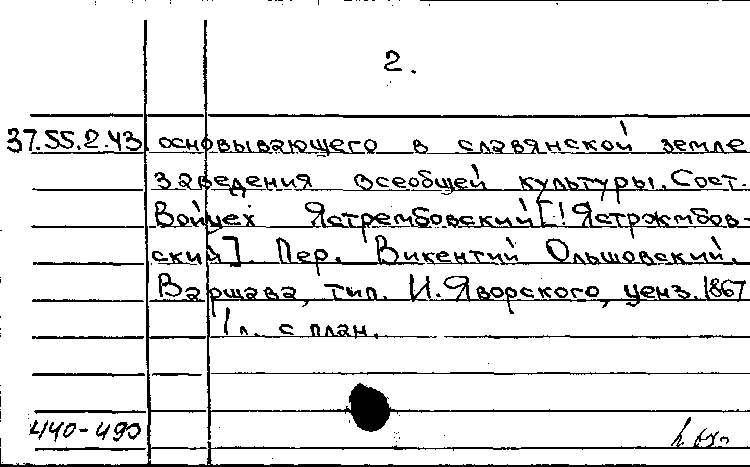 2.
37.55.2.43 основывающего в славянской земле
заведения всеобщей культуры. Сост.
Войцех Ястрембовский [! Ястржмбов-
ский]. Пер. Викентий Ольшовский.
Варшава, тип. И. Яворского, ценз. 1867
1 л. с план.
440-490